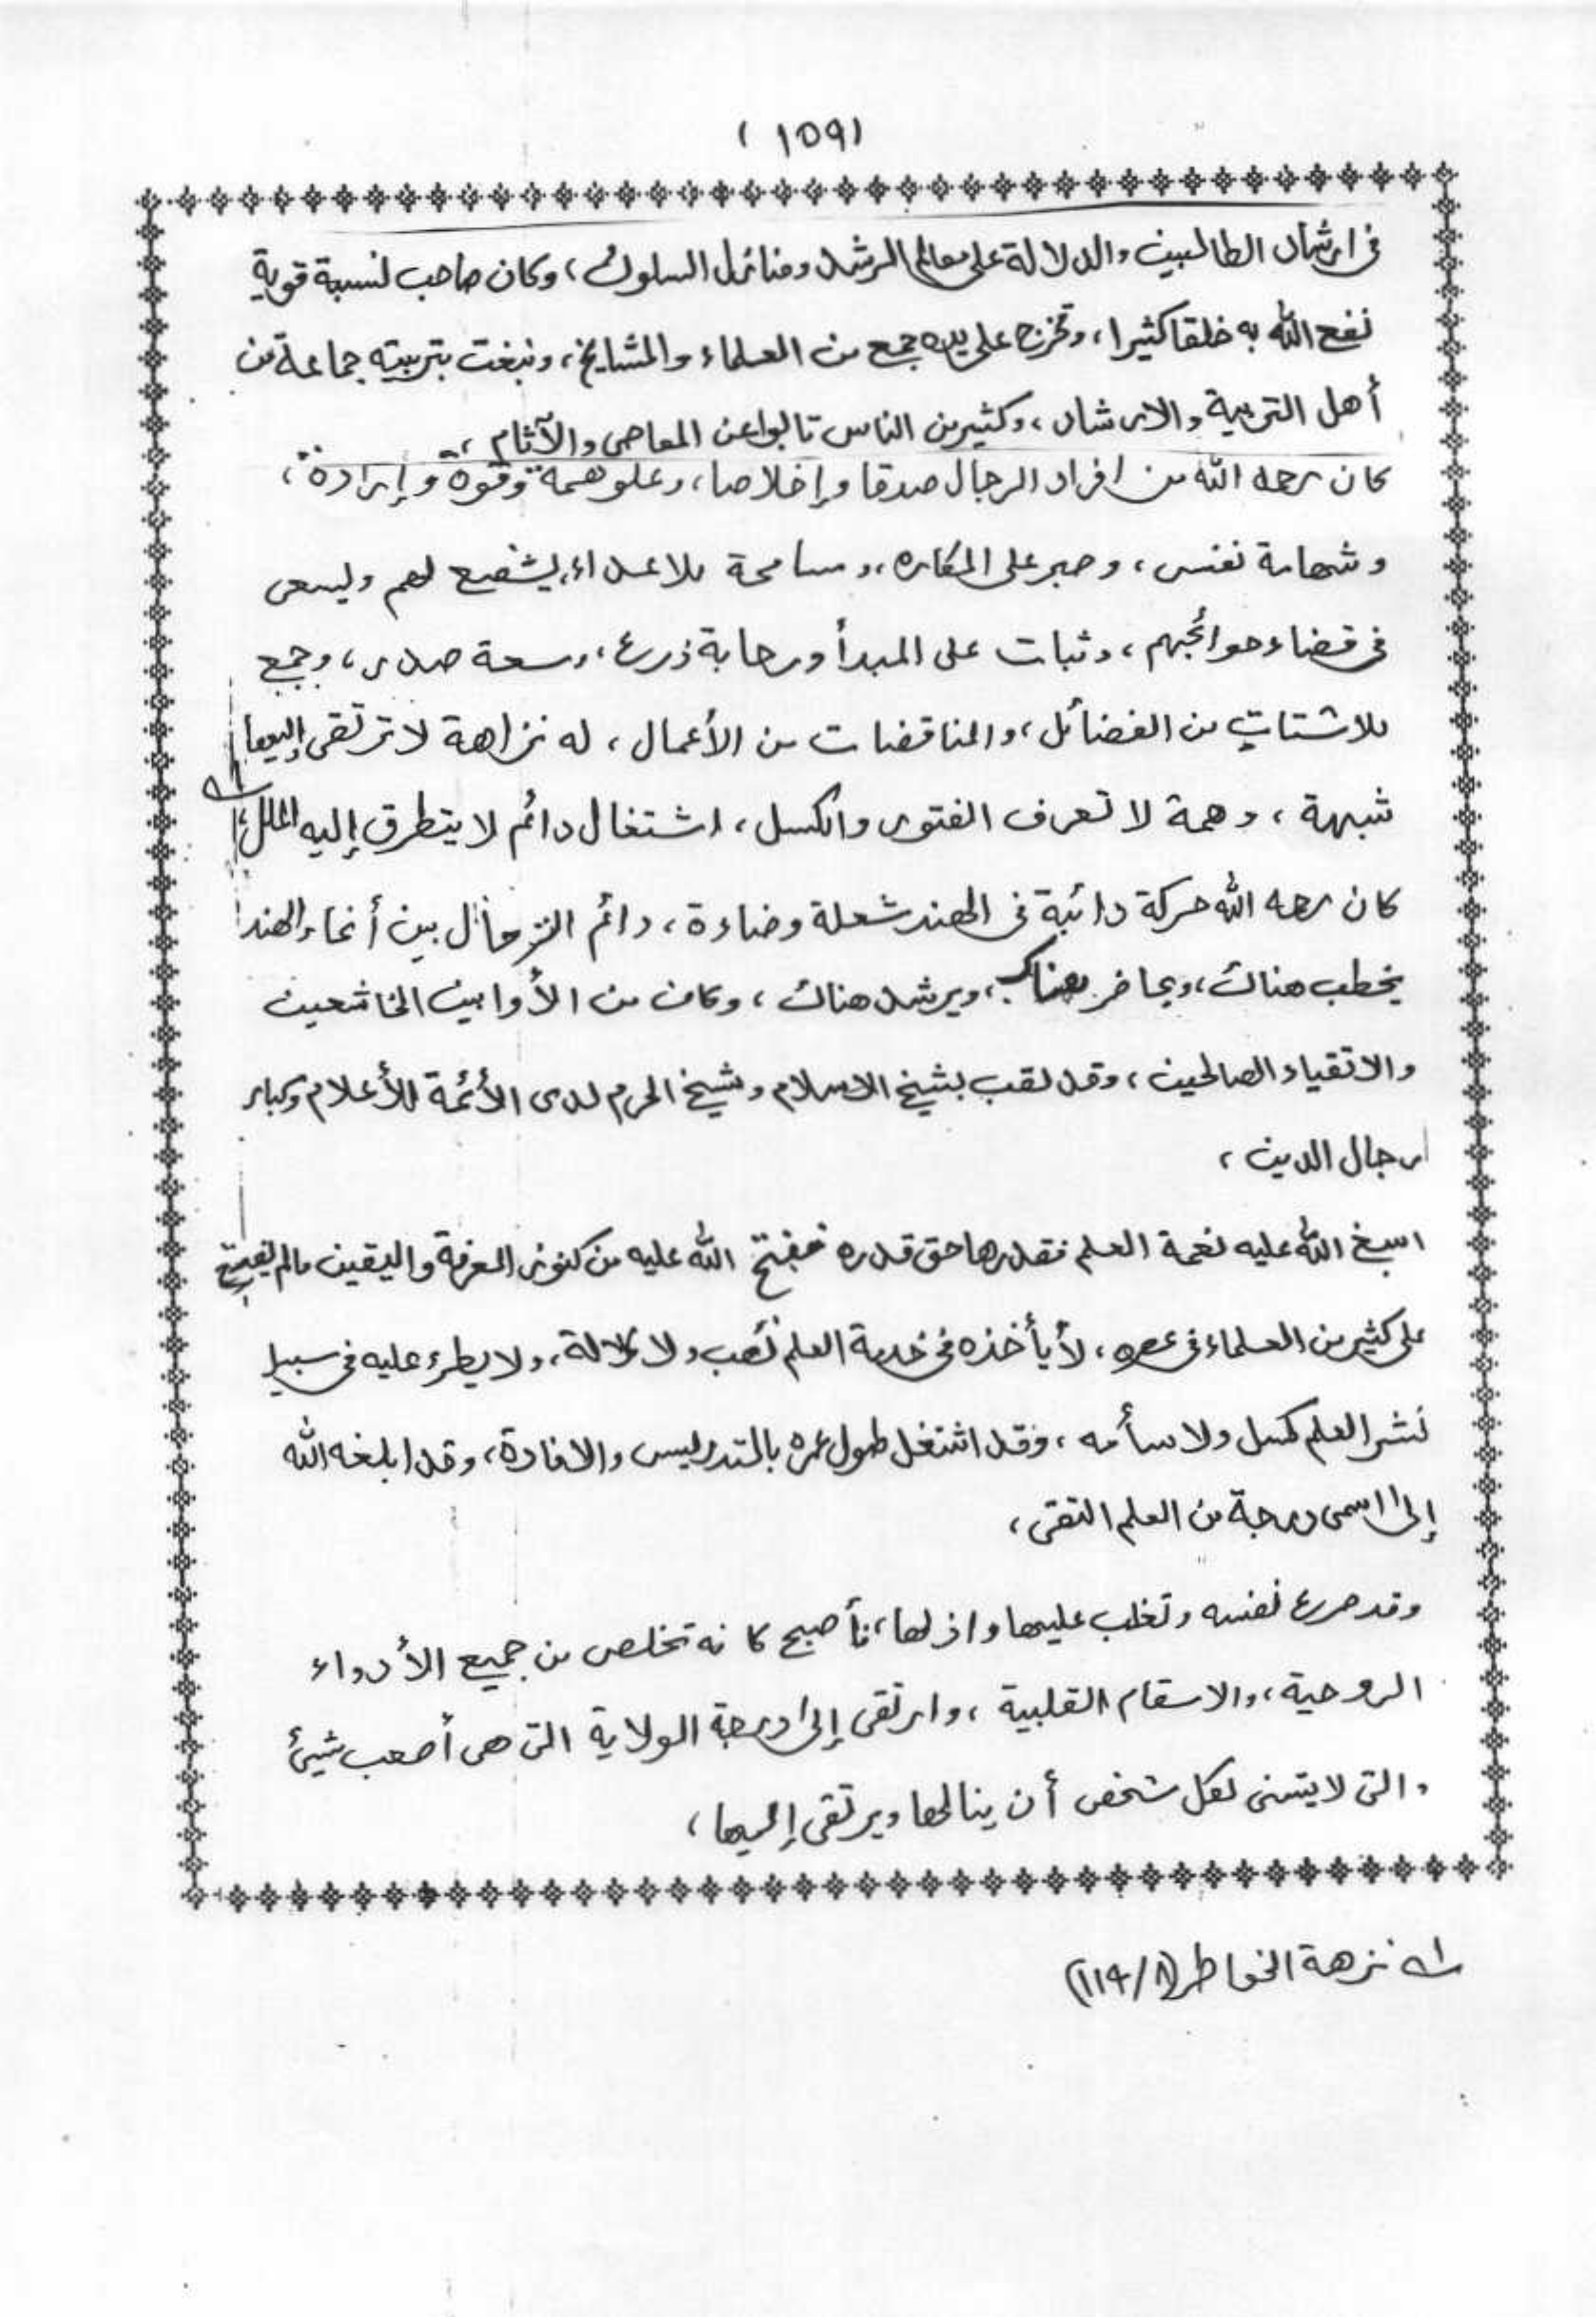 ( ١٥٩ )
فى ارشاد الطالبين والدلالة على معالم الرشد ومنائل السلوك، وكان صاحب نسبة قوية
نفع الله به خلقا كثيرا، وتخرج على يده جمع من العلماء والمشايخ، ونبغت بتربيته جماعة من
أهل التربية والارشاد، وكثير من الناس تابوا عن المعاصى والآثام،
كان رحمه الله من افراد الرجال صدقا وإخلاصا، وعلو همة وقوة وإرادة،
وشهامة نفس، وصبر على المكاره، ومسامحة للاعداء، يشفع لهم ويسعى
فى قضاء حوائجهم، وثبات على المبدأ ورحابة ذرع، وسعة صدر، وجمع
للاشتات من الفضائل، والمناقضات من الأعمال، له نزاهة لا ترتقى إليها
شبهة، وهمة لا تعرف الفتور والكسل، اشتغال دائم لا يتطرق إليه الملل، ١ـه
كان رحمه الله حركة دائبة فى الهند شعلة وضاءة، دائم الترحال بين أنحاء الهند
يخطب هناك، ويحاضر هناك، ويرشد هناك، وكان من الأوابين الخاشعين
والاتقياء الصالحين، وقد لقب بشيخ الاسلام وشيخ الحرم لدى الأئمة الأعلام وكبار
رجال الدين،
اسبغ الله عليه نعمة العلم فقدرها حق قدره ففتح الله عليه من كنوز المعرفة واليقين مالم يفتح
على كثير من العلماء فى عصره، لا يأخذه فى خدمة العلم تعب ولا كلالة، ولا يطرء عليه فى سبيل
نشر العلم كسل ولا سأمه، وقد اشتغل طول عمره بالتدريس والافادة، وقد ابلغه الله
إلى اسمى درجة من العلم التقى،
وقد صرع نفسه وتغلب عليها واذلها، فأصبح كانه تخلص من جميع الأدواء
الروحية، والاسقام القلبية، وارتقى إلى درجة الولاية التى هى أصعب شيئ
والتى لا يتسنى لكل شخص أن ينالها ويرتقى إليها،
١ـه نزهة الخواطر (٨/١١٤)